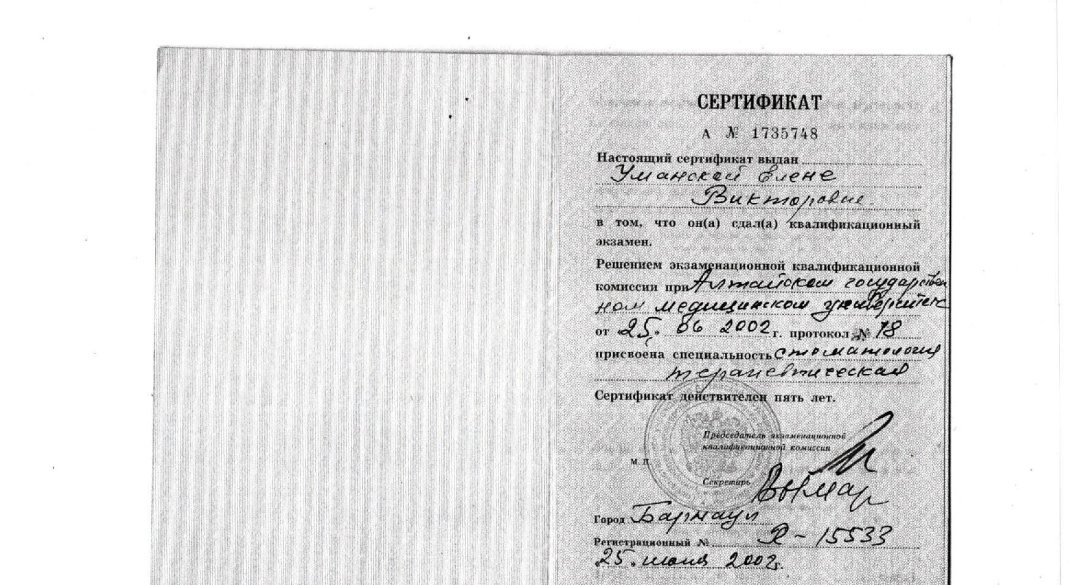 СЕРТИФИКАТ
А № 1735748
Настоящий сертификат выдан
Уманской Елене
Викторовне
в том, что он(а) сдал(а) квалификационный
экзамен.
Решением экзаменационной квалификационной
комиссии при Алтайском государствен
ном медицинском университете
от 25. 06 2002 г. протокол № 18
присвоена специальность стоматология
терапевтическая
Сертификат действителен пять лет.
Председатель экзаменационной
квалификационной комиссии
М. П.
Секретарь
Город Барнаул
Регистрационный № Я - 15533
25. июня 2002г.